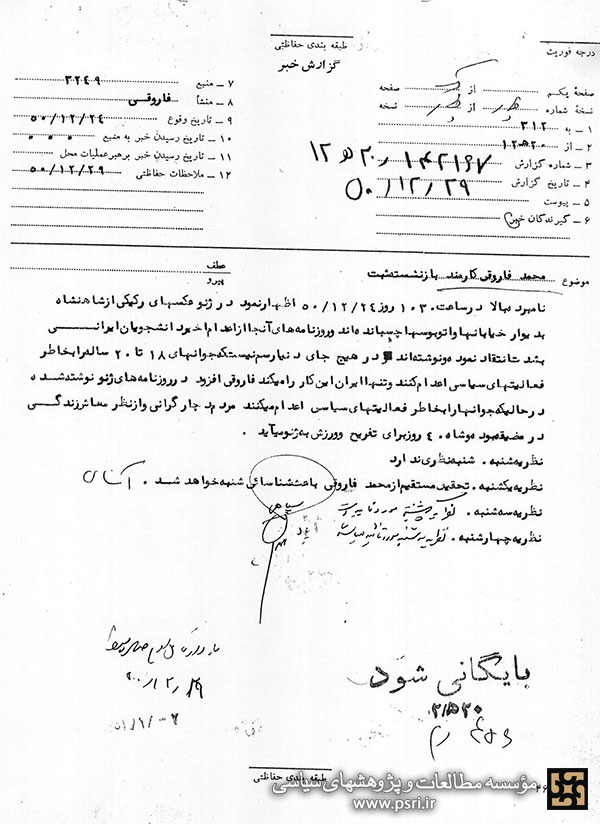 طبقه بندی حفاظتی
درجه فوریت
گزارش خبر
صفحهٔ یکم از صفحه
نسخهٔ شماره از نسخه
۱ - به ۳۱۲
۲ - از ۱۲ﻫ۲۰
۳ - شماره گزارش ۱۴۲۱۶۷ / ۱۲ﻫ۲۰
۴ - تاریخ گزارش ۵۰/۱۲/۲۹
۵ - پیوست
۶ - گیرندگان خبر
۷ - منبع ۳۲۴۹
۸ - منشأ فاروقی
۹ - تاریخ وقوع ۵۰/۱۲/۲۴
۱۰ - تاریخ رسیدن خبر به منبع
۱۱ - تاریخ رسیدن خبر برهبر عملیات محل
۱۲ - ملاحظات حفاظتی ۵۰/۱۲/۲۹
موضوع محمد فاروقی کارمند بازنشسته ثبت
عطف
پیرو
نامبرده بالا در ساعت ۱۰۳۰ روز ۵۰/۱۲/۲۴ اظهار نمود در ژنو عکسهای رکیکی از شاهنشاه
بدیوار خیابانها و اتوبوسها چسبانده اند و روزنامه های آنجا از اعدام اخیر دانشجویان ایرانی
بشدت انتقاد نموده و نوشته اند در هیچ جای دنیا رسم نیست که جوانهای ۱۸ تا ۲۰ ساله را بخاطر
فعالیتهای سیاسی اعدام کنند و تنها ایران این کار را میکند فاروقی افزود در روزنامه های ژنو نوشته شده
در حالیکه جوانها را بخاطر فعالیتهای سیاسی اعدام میکنند مردم دچار گرانی و از نظر معاش زندگی
در مضیقه بوده و شاه ۴۰ روز برای تفریح و ورزش به ژنو میآید .
نظریه شنبه . شنبه نظری ندارد
نظریه یکشنبه . تحقیق مستقیم از محمد فاروقی باعث شناسائی شنبه خواهد شد . آشنای
نظریه سه شنبه . نظریه یکشنبه مورد تائید است
نظریه چهارشنبه . نظریه سه شنبه مورد تائید میباشد
بایگانی شود
طبقه بندی حفاظتی
مؤسسه مطالعات و پژوهشهای سیاسی
www.psri.ir